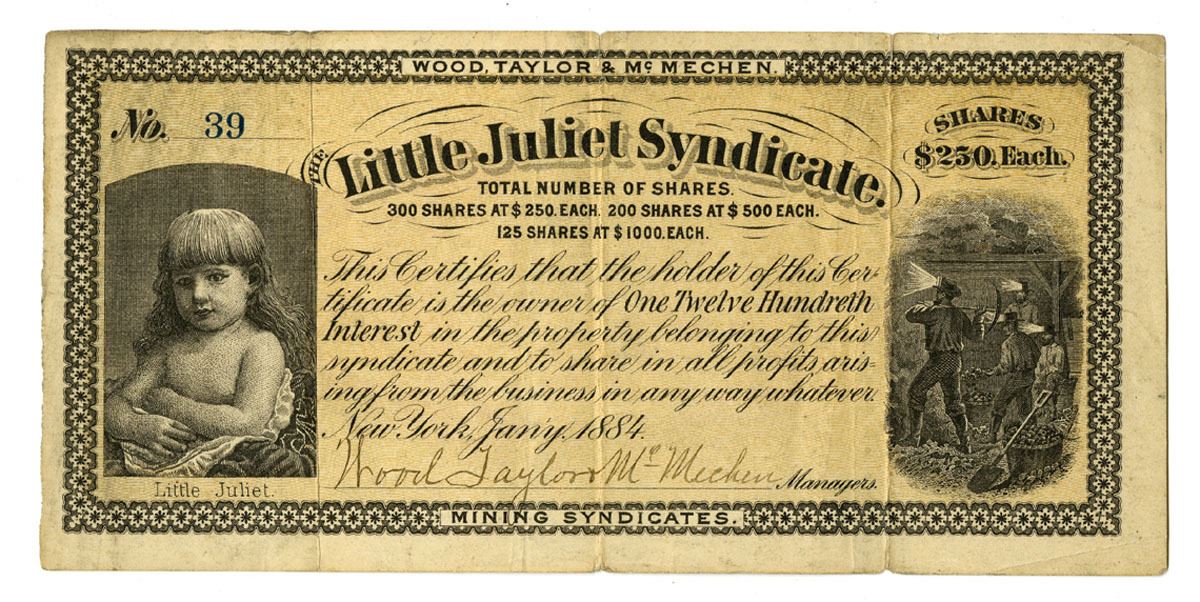 WOOD, TAYLOR & Mc MECHEN.
No. 39
THE Little Juliet Syndicate.
SHARES
$250. Each.
TOTAL NUMBER OF SHARES.
300 SHARES AT $250. EACH. 200 SHARES AT $500 EACH.
125 SHARES AT $1000. EACH.
This Certifies that the holder of this Cer-
tificate is the owner of One Twelve Hundreth
Interest in the property belonging to this
syndicate and to share in all profits aris-
ing from the business in any way whatever.
New York, Jan'y. 1884.
Wood Taylor & Mc Mechen Managers.
Little Juliet.
MINING SYNDICATES.